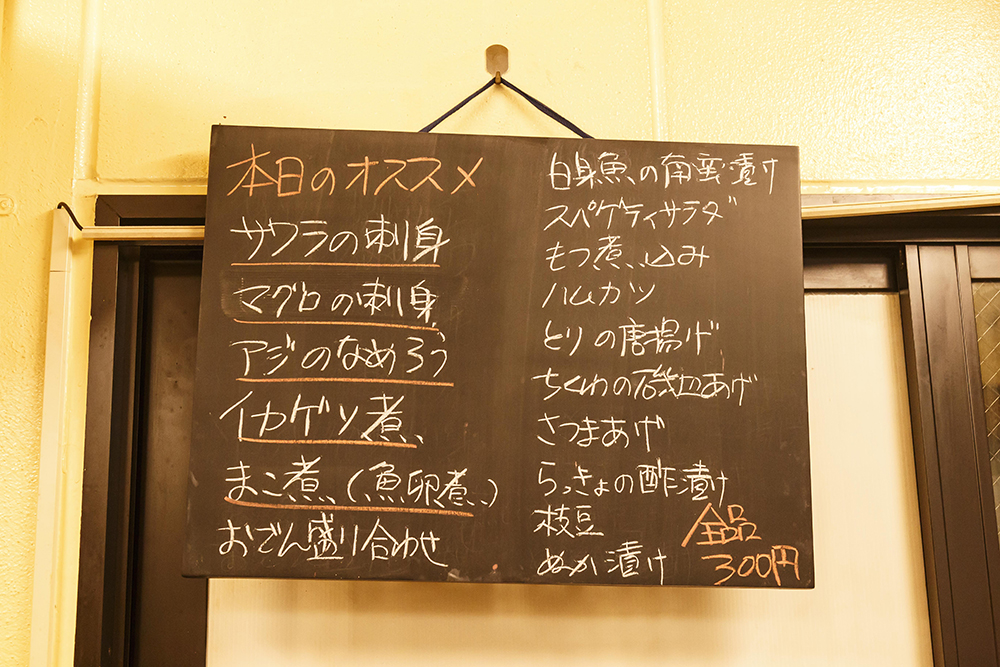 本日のオススメ
サワラの刺身
マグロの刺身
アジのなめろう
イカゲソ煮
まこ煮(魚卵煮)
おでん盛り合わせ
白身魚の南蛮漬け
スパゲティサラダ
もつ煮込み
ハムカツ
とりの唐揚げ
ちくわの磯辺あげ
さつまあげ
らっきょの酢漬け
枝豆
ぬか漬け
全品
300円